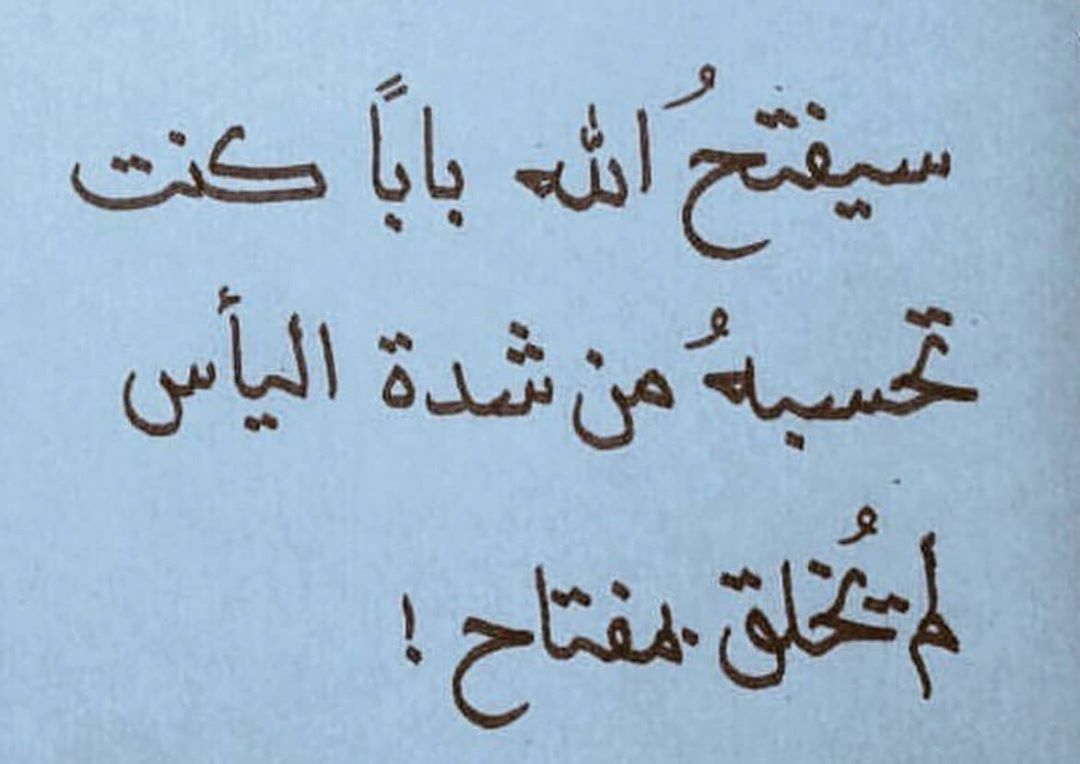 سيفتحُ الله باباً كنت
تحسبهُ من شدة اليأس
لم تُخلق بمفتاح !